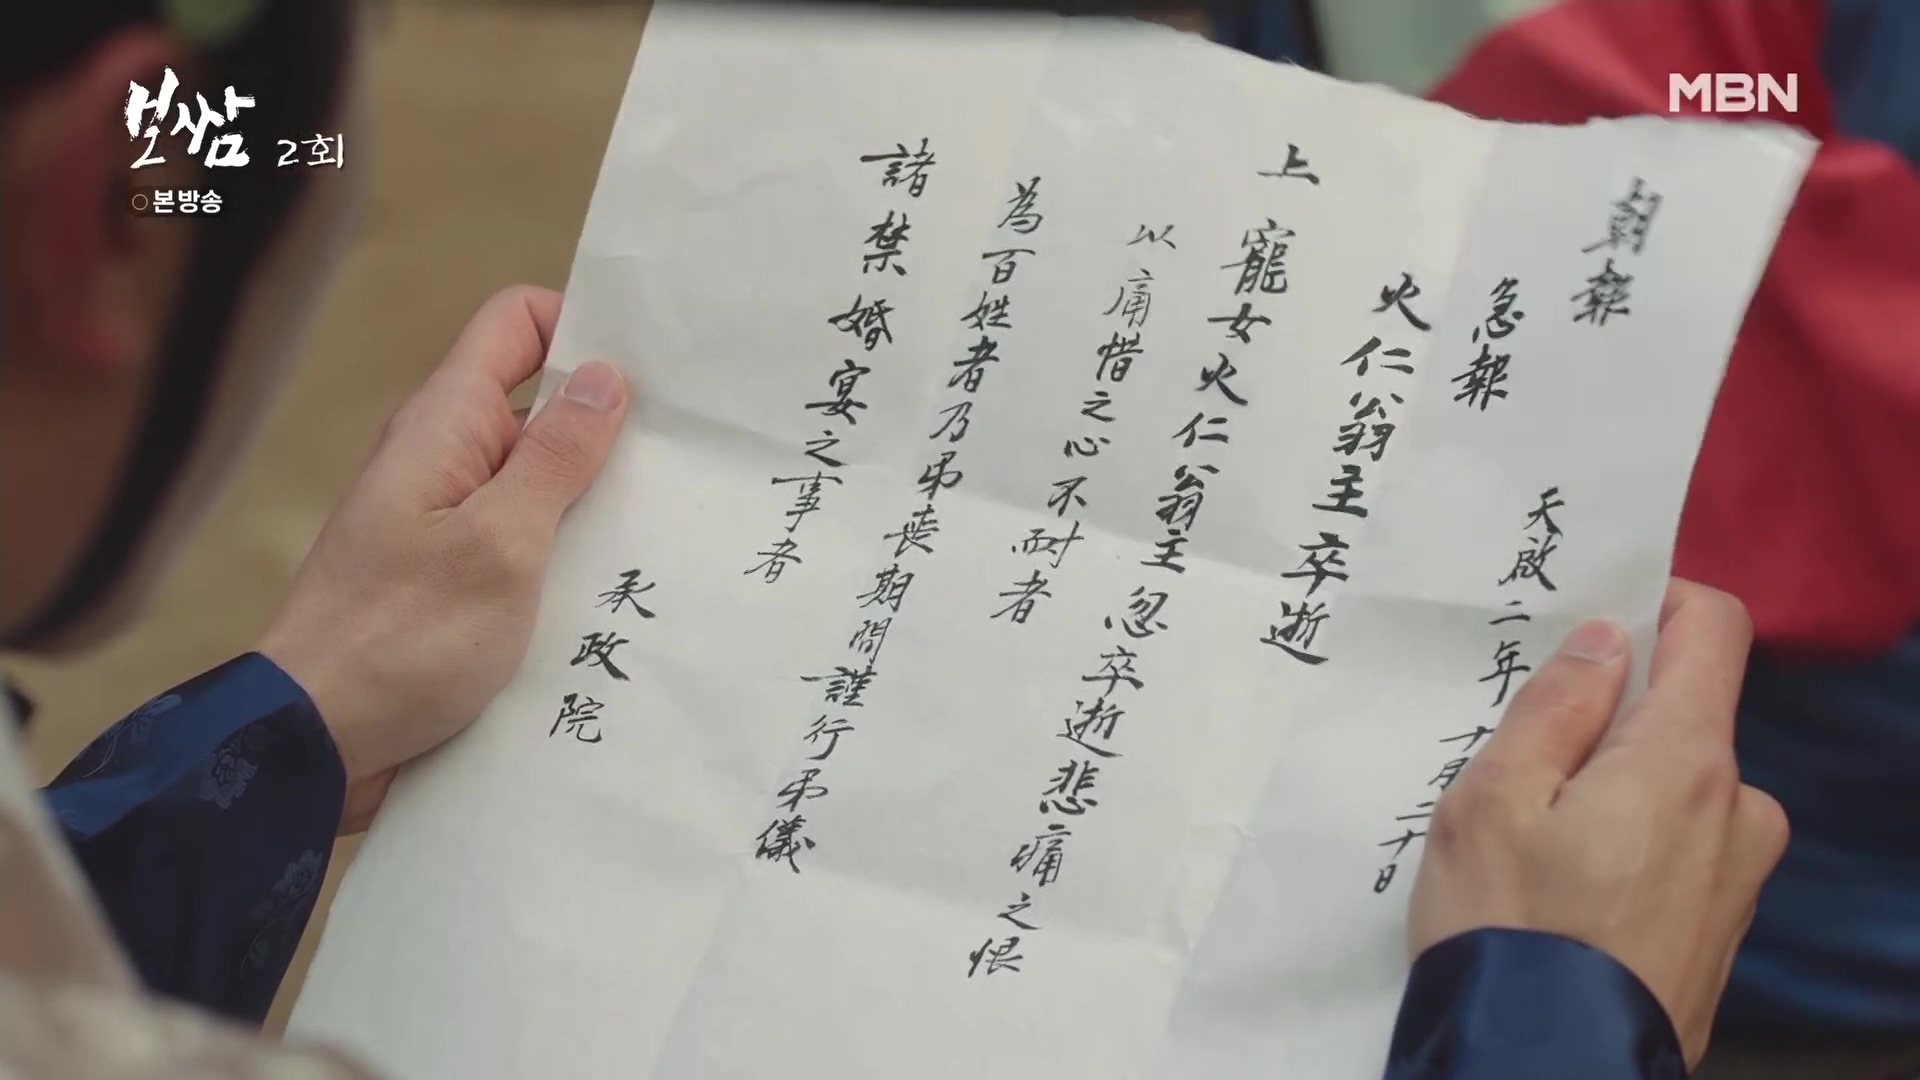 보쌈 2회
본방송
MBN
朝報
急報 天啟二年 十月二十日
火仁翁主卒逝
上寵女火仁翁主忽卒逝悲痛之恨
以痛惜之心不耐者
為百姓者乃弔喪期間謹行弔儀
諸禁婚宴之事者
承政院